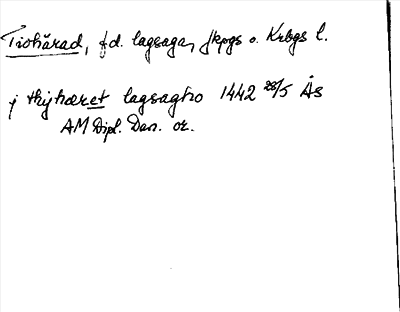 Tiohärad, f.d. lagsaga, Jkpgs o. Krbgs l.
j thijhæret lagsaghο 1442 28/5 Ås
AM Dipl. Dan. or.